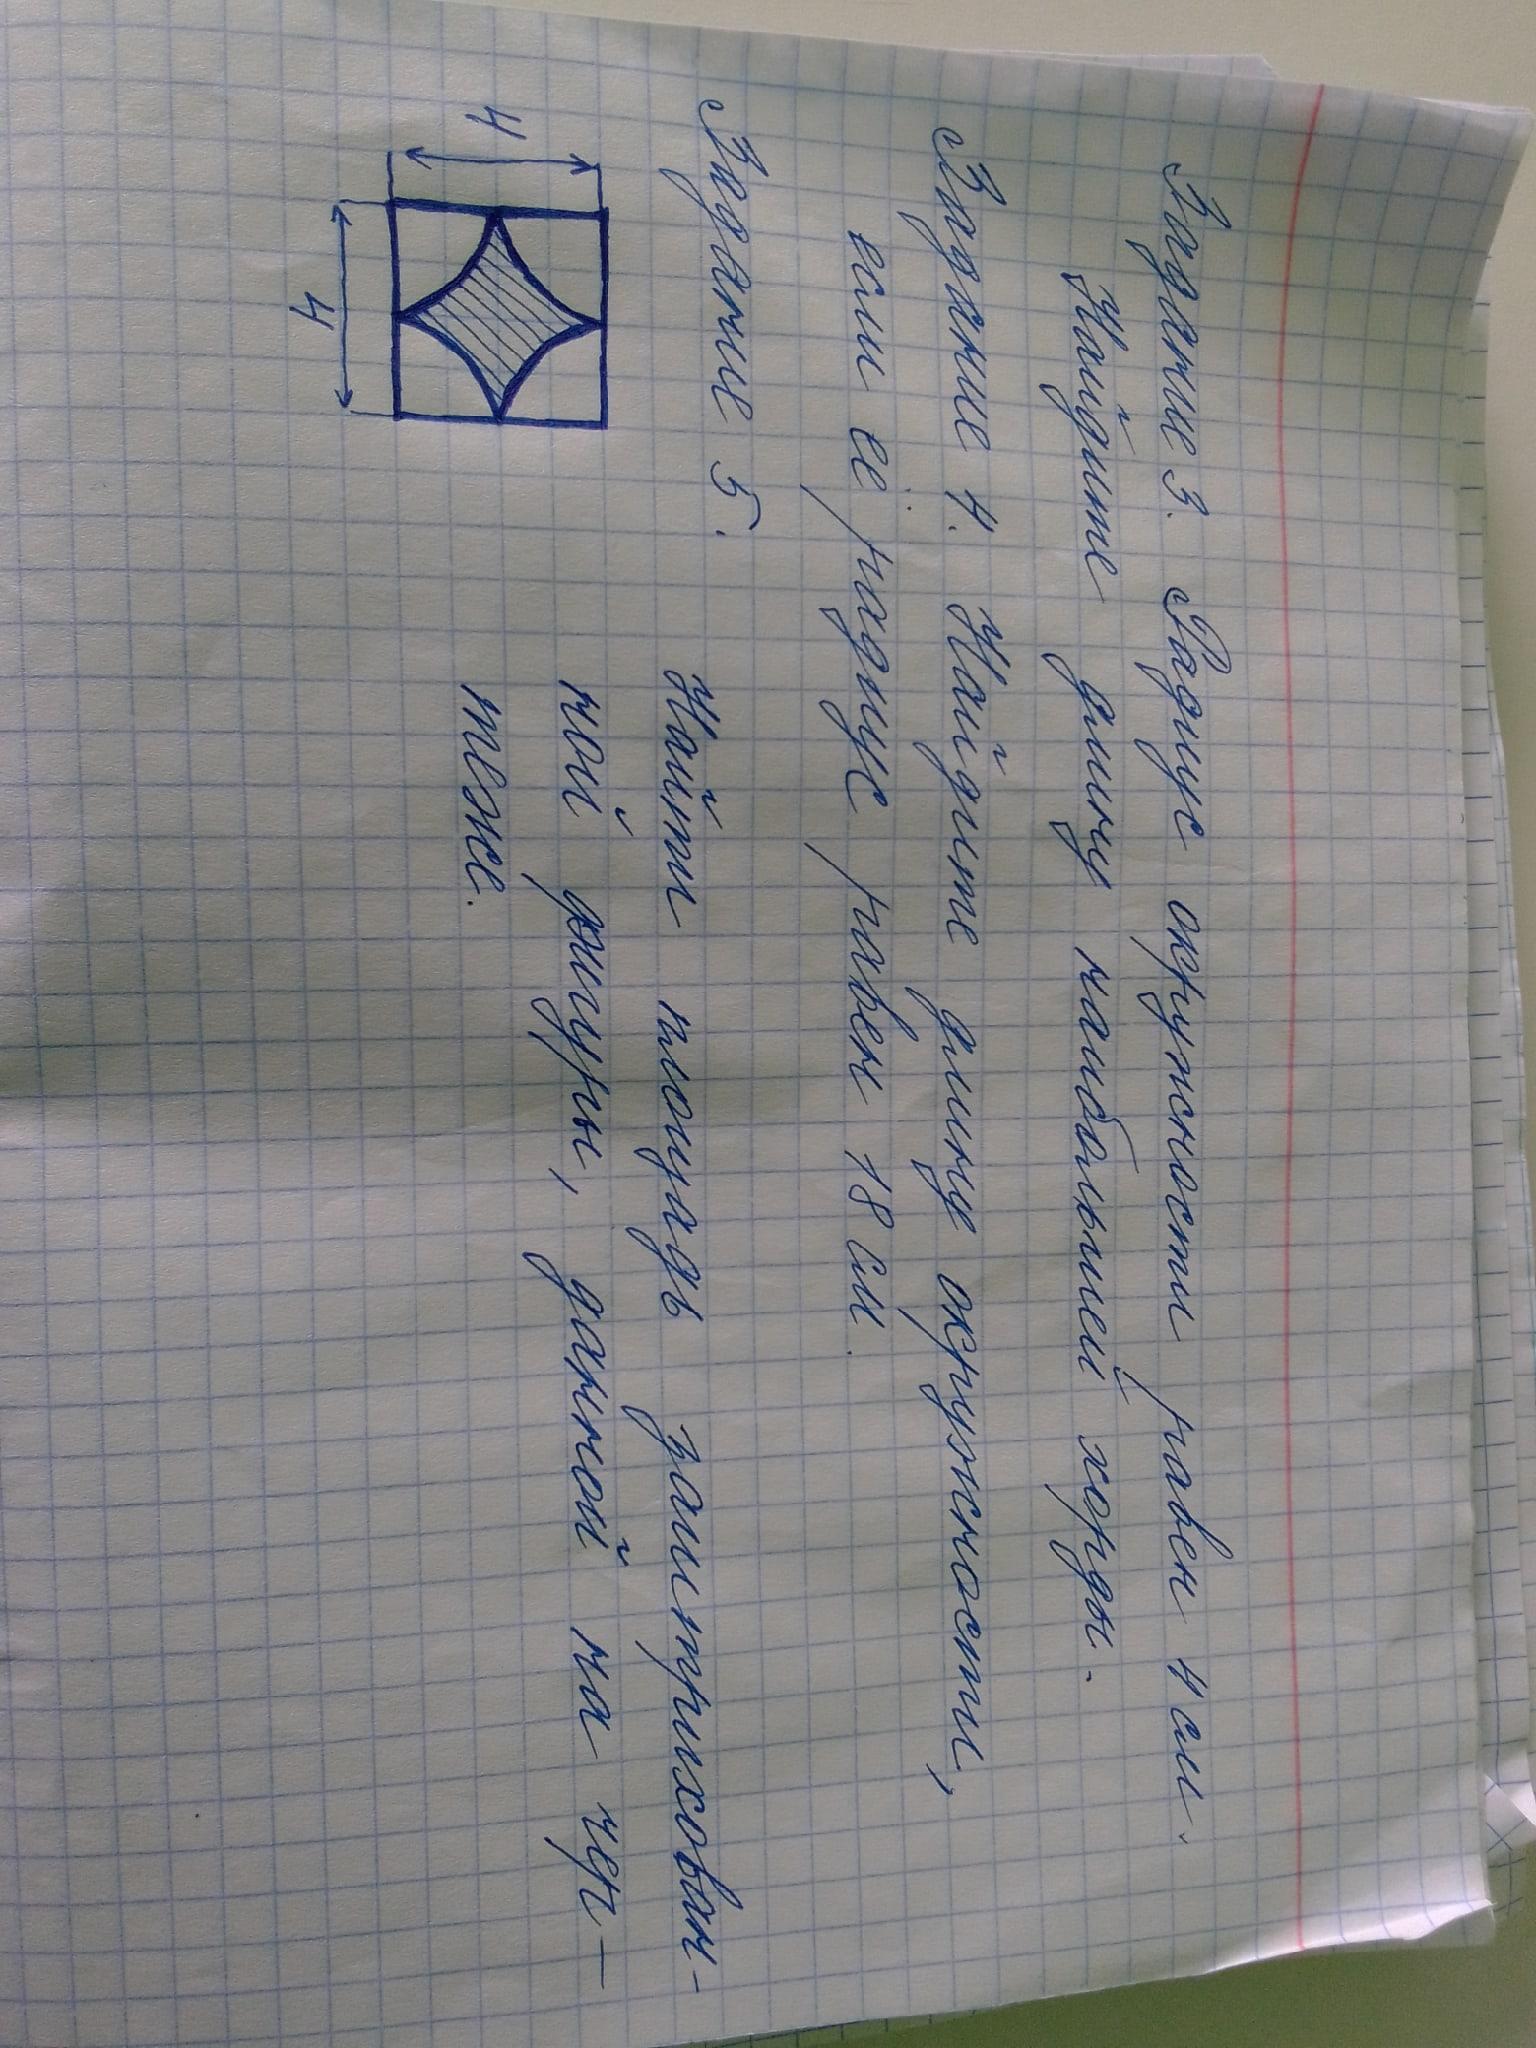 Задание 3. Радиус окружности равен 4 см.
Найдите длину наибольшей хорды.
Задание 4. Найдите длину окружности,
если её радиус равен 18 см.
Задание 5.
Найти площадь заштрихован-
ной фигуры, данной на чер-
теже.
4
4